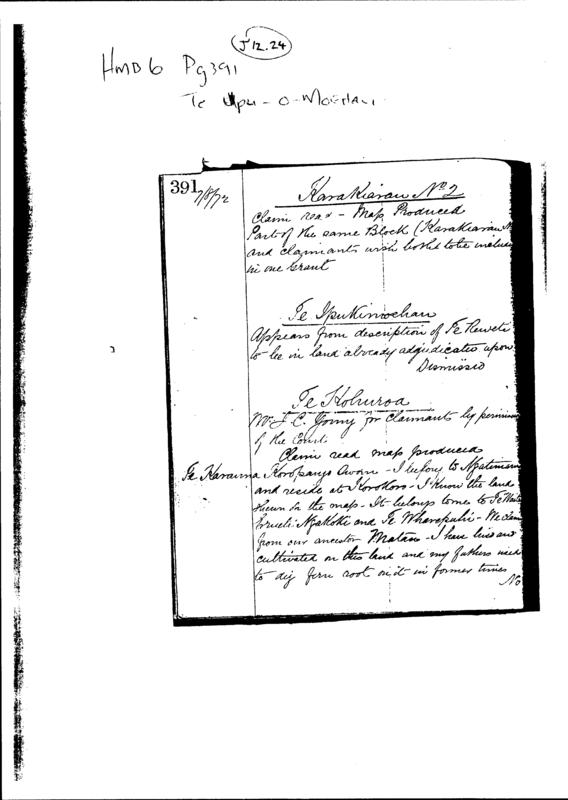 J 12.24
HMB 6 Pg 391
Te - o -
391
7/8/72
Karakiarau No 2
Claim read - Map Produced
Part of the same Block (Karakiarau
and claimants wish both to be
in one Grant
Te Ipukimoehau
Appears from description of Te Reweti
to be in land already adjudicated upon
Dismissed
Te Kohuroa
Mr J. C. Young for Claimants by
of the Court
Claim read map produced
Te Karauna Koropango Awarn - I belong to
and reside at - I know the land
shewn on the map - It belongs to me to Te
and Te - We claim
from our ancestor Mataau - I have lived and
cultivated on this land and my fathers used
to dig fern root on it in former times
No